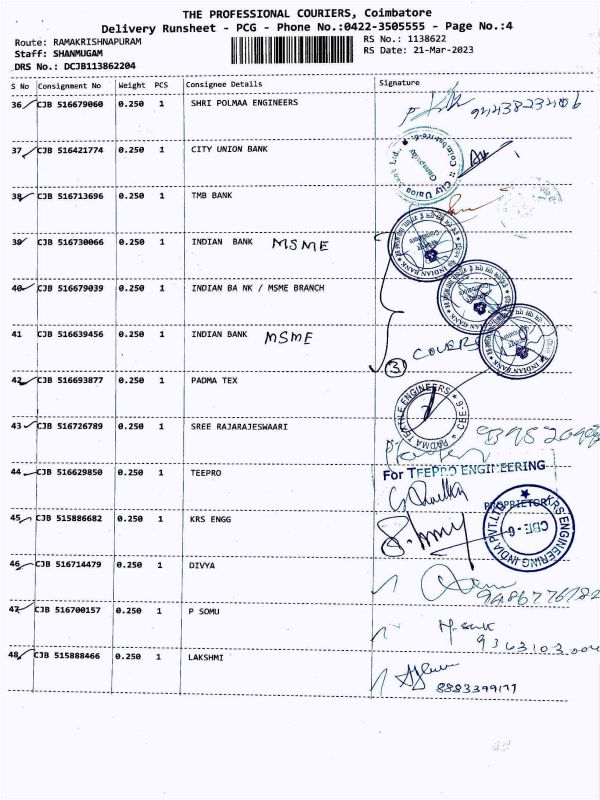 THE PROFESSIONAL COURIERS, Coimbatore
Delivery Runsheet - PCG - Phone No.:0422-3505555 - Page No.:4
Route: RAMAKRISHNAPURAM RS No.: 1138622
Staff: SHANMUGAM RS Date: 21-Mar-2023
DRS No.: DCJB113862204
S No Consignment No Weight PCS Consignee Details Signature
36 CJB 516679060 0.250 1 SHRI POLMAA ENGINEERS
37 CJB 516421774 0.250 1 CITY UNION BANK
38 CJB 516713696 0.250 1 TMB BANK
39 CJB 516730066 0.250 1 INDIAN BANK MSME
40 CJB 516679039 0.250 1 INDIAN BA NK / MSME BRANCH
41 CJB 516639456 0.250 1 INDIAN BANK MSME
3 COVERS
42 CJB 516693877 0.250 1 PADMA TEX
43 CJB 516726789 0.250 1 SREE RAJARAJESWAARI
For TEEPRO ENGINEERING
44 CJB 516629850 0.250 1 TEEPRO
PROPRIETOR
45 CJB 515886682 0.250 1 KRS ENGG
KRS ENGINEERING INDIA PVT.LTD CBE-6
46 CJB 516714479 0.250 1 DIVYA
47 CJB 516700157 0.250 1 P SOMU
48 CJB 515888466 0.250 1 LAKSHMI